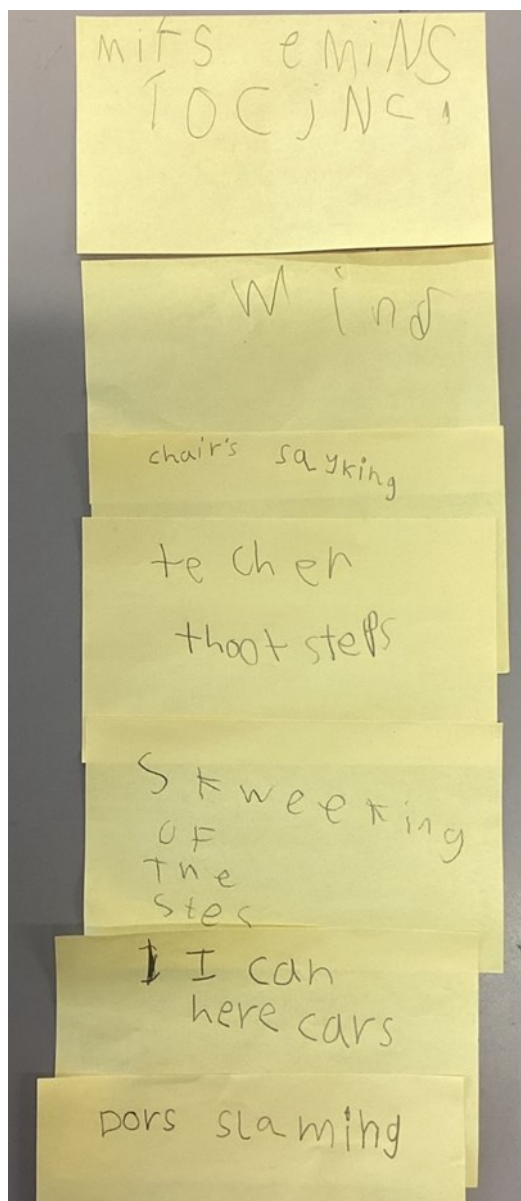 mits emiNS
TOCjNC.
Wind
chair's sayking
techer
thootsteps
Skweeking
OF
The
Stes
I I can
here cars
Dors slaming